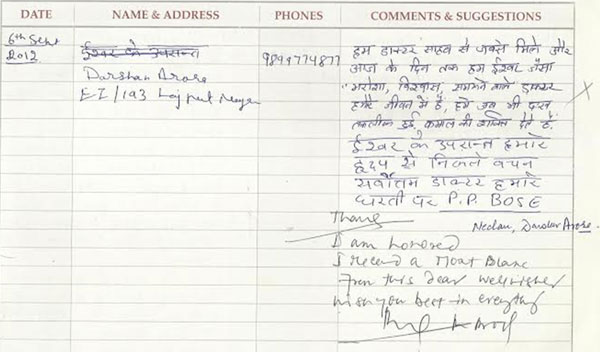 DATE NAME & ADDRESS PHONES COMMENTS & SUGGESTIONS
6th Sept
2012
ईश्वर के उपरान्त
Darshan Arora
EI/193 Lajpat Nagar
9899774877
हम डाक्टर साहब से जबसे मिले और
आज के दिन तक हम ईश्वर जैसा
भरोसा, विश्वास, समझने वाले डाक्टर
हमारे जीवन में है, हमें जब भी
तकलीफ हुई, कमाल की शक्ति देते हैं.
ईश्वर के उपरान्त हमारे
हृदय से निकले वचन
सर्वोत्तम डाक्टर हमारे
धरती पर P.P. BOSE
Neelam, Darshan Arora.
Thanks
I am honored
I received a Mont Blanc
From this dear wellwisher
wish you best in everything